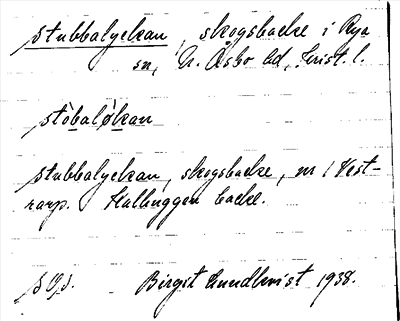 stubbalyckan, skogsbacke i Rya
sn, N. Åsbo hd, Krist. l.
stòbalø̀kan
stubbalyckan, skogsbacke, m / Vest-
rarp. Kalhuggen backe.
Birgit Lundkvist 1938.